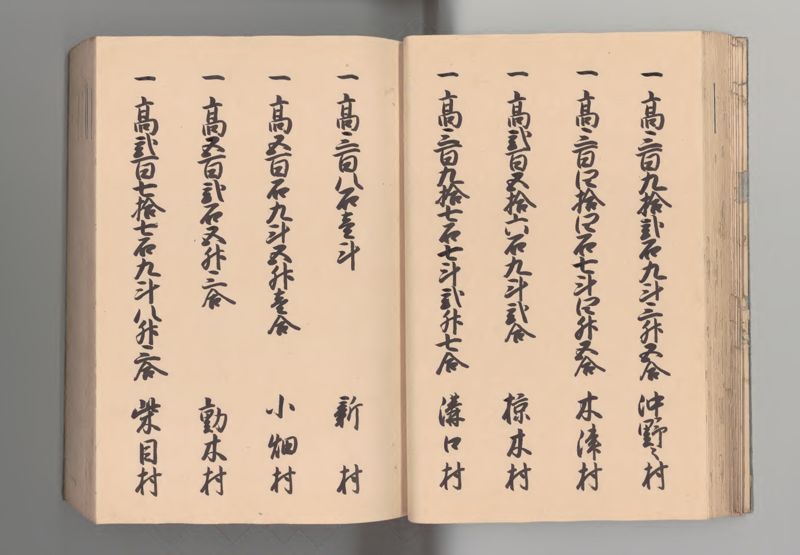 一 高三百九拾弐石九斗三升五合 沖野々村
一 高三百四拾四石七斗四升五合 木津村
一 高弐百五拾六石九斗弐合 椋木村
一 高三百九拾七石七斗弐升七合 溝口村
一 高三百八石壱斗 新村
一 高五百石九斗五升壱合 小畑村
一 高五百弐石五升三合 動木村
一 高弐百七拾七石九斗八升三合 柴目村